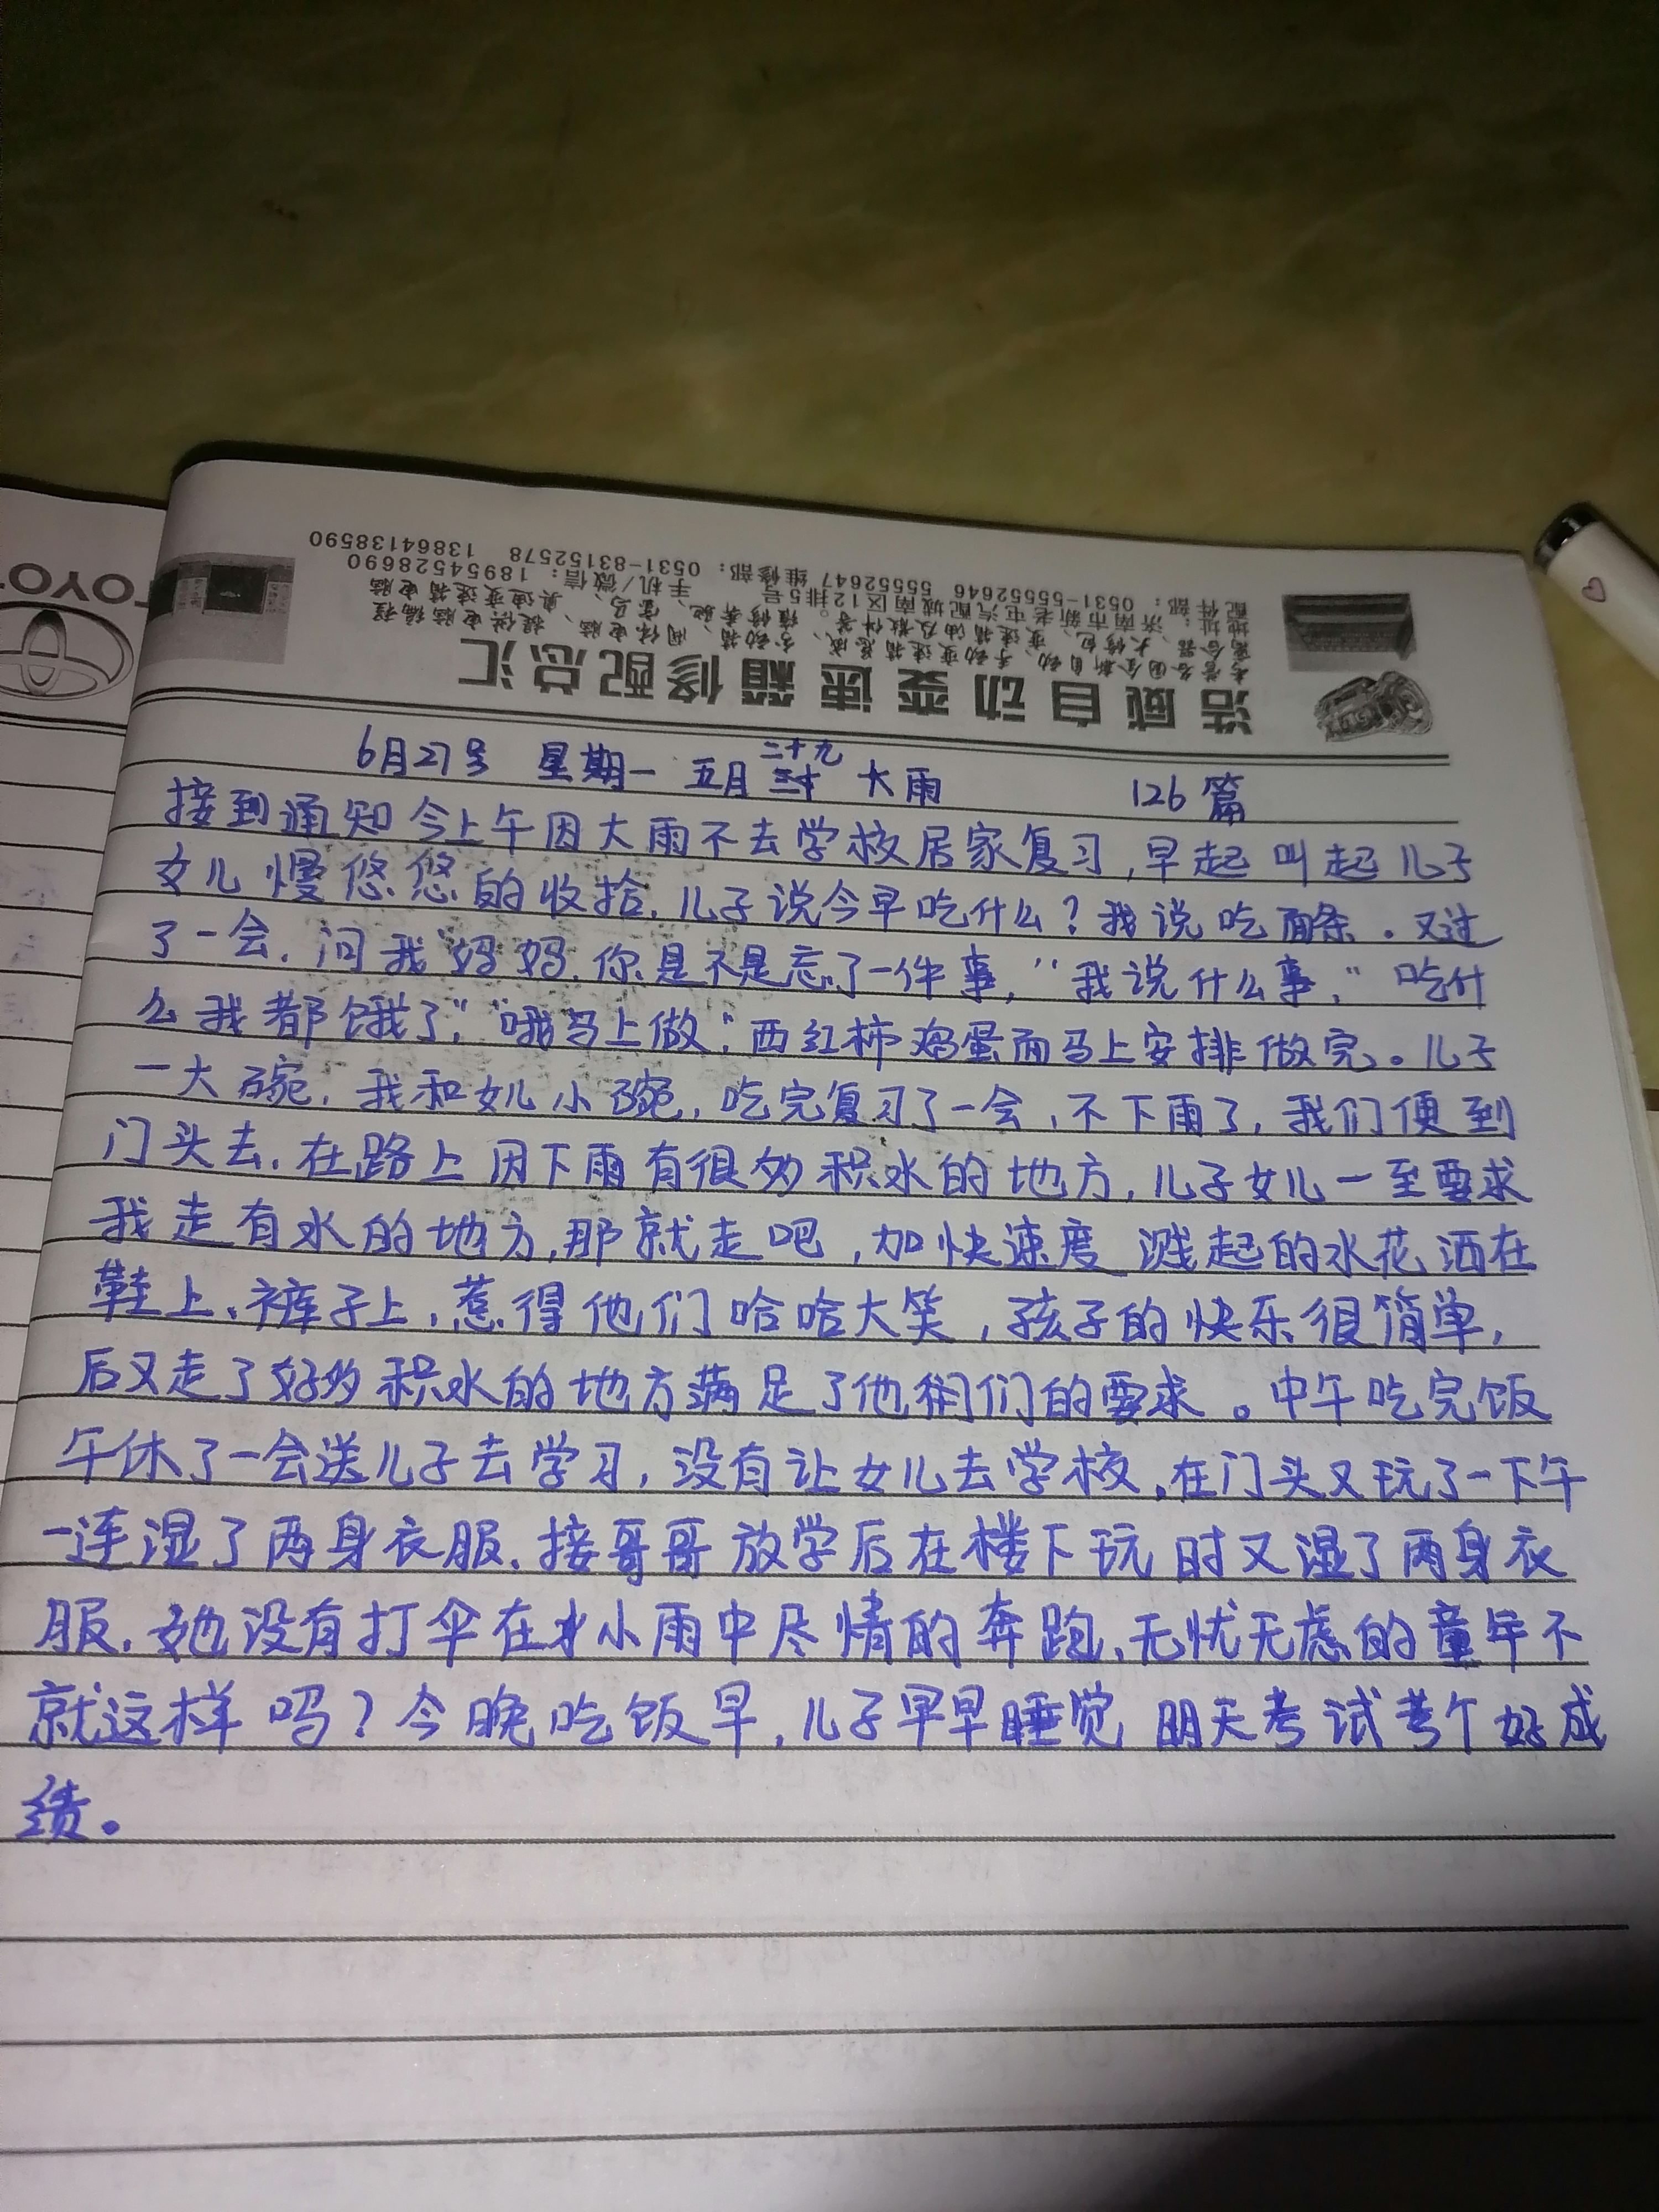 TOYO
浩威自动变速箱修配总汇
配件部：0531-55552646 55552647 维修部：0531-83152578 13864138590
地址：济南市新老屯汽配城南区12排5号。 手机/微信：18954528690
6月27号 星期一 五月二十九 大雨 126篇
接到通知今上午因大雨不去学校居家复习,早起叫起儿子
女儿慢悠悠的收拾,儿子说今早吃什么?我说吃面条。又过
了一会,问我"妈妈,你是不是忘了一件事,""我说什么事,"吃什
么我都饿了","哦马上做",西红柿鸡蛋面马上安排做完。儿子
一大碗,我和女儿小碗,吃完复习了一会,不下雨了,我们便到
门头去,在路上因下雨有很多积水的地方,儿子女儿一至要求
我走有水的地方,那就走吧,加快速度 溅起的水花洒在
鞋上、裤子上,惹得他们哈哈大笑,孩子的快乐很简单,
后又走了好多积水的地方满足了他们的要求。中午吃完饭
午休了一会送儿子去学习,没有让女儿去学校,在门头又玩了一下午
一连湿了两身衣服,接哥哥放学后在楼下玩时又湿了两身衣
服,她没有打伞在小雨中尽情的奔跑,无忧无虑的童年不
就这样吗?今晚吃饭早,儿子早早睡觉 明天考试考个好成
绩。